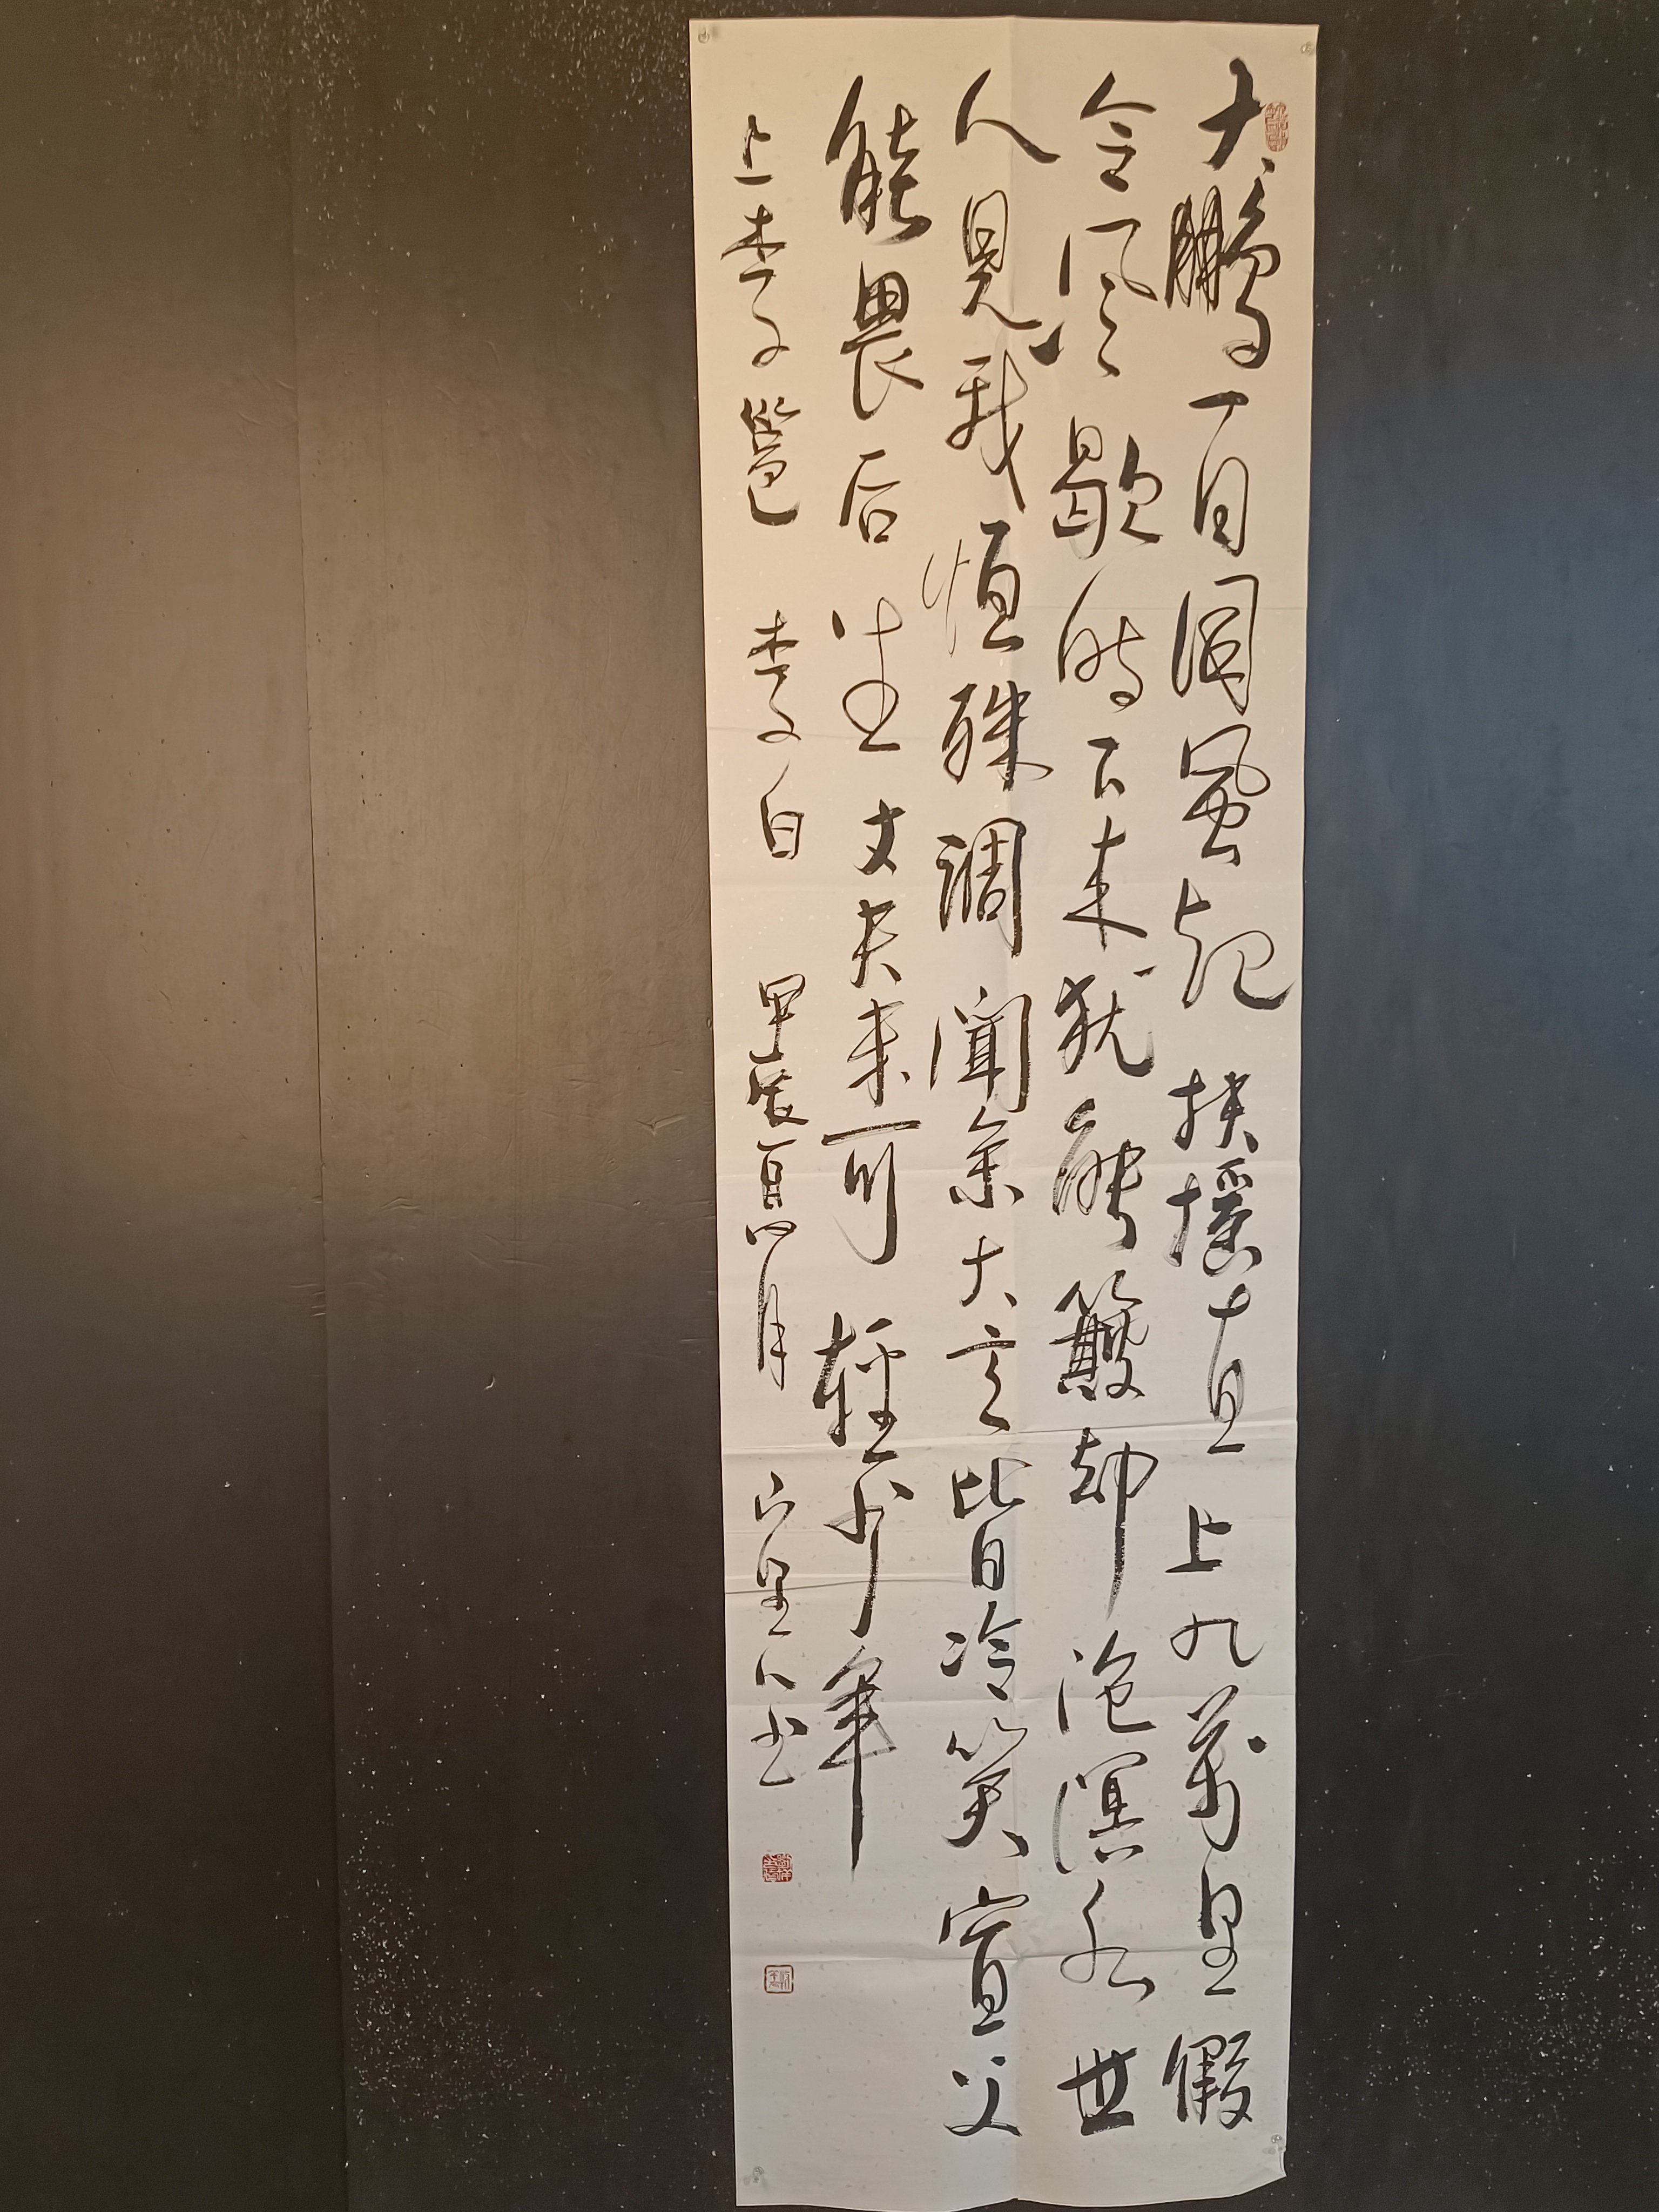 大鵬一日同風起扶摇直上九萬里假
令风歇時下来犹能簸却沧溟水世
人見我恒殊調聞余大言皆冷笑宣父
能畏后生丈夫未可輕少年
上李邕 李白 甲辰夏四月 里人书